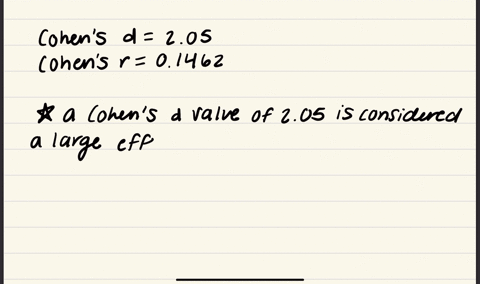 Cohen's d = 2.05
Cohen's r = 0.1462
☆ a Cohen's d value of 2.05 is considered
a large eff